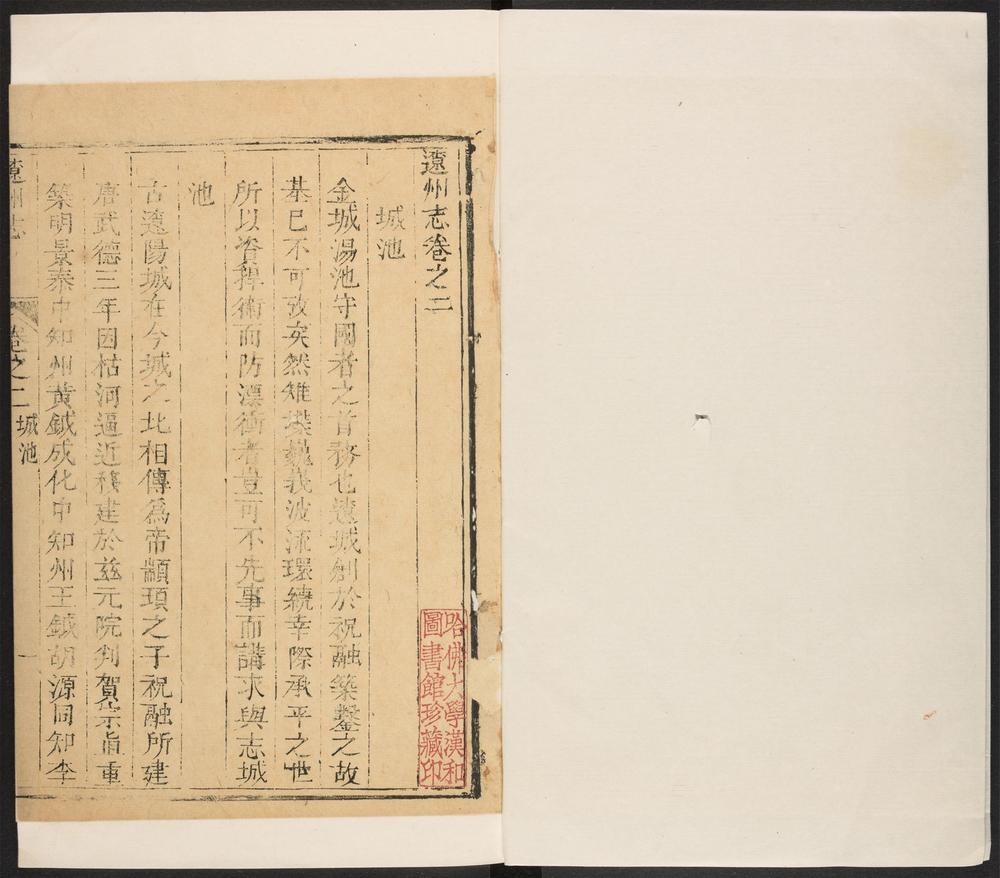 遼州志卷之二
城池
金城湯池守國者之首務也遼城創於祝融築鑿之故
基已不可攷矣然雉堞巍峩波流環繞幸際承平之世
所以資捍衛而防漂衝者豈可不先事而講求與志城
池
古遼陽城在今城之北相傳爲帝顓頊之子祝融所建
唐武德三年因枯河逼近移建於茲元院判賀宗眞重
築明景泰中知州黃鉞成化中知州王鉞胡源同知李
遼州志
卷之二
城池
一
哈佛大學漢和
圖書館珍藏印